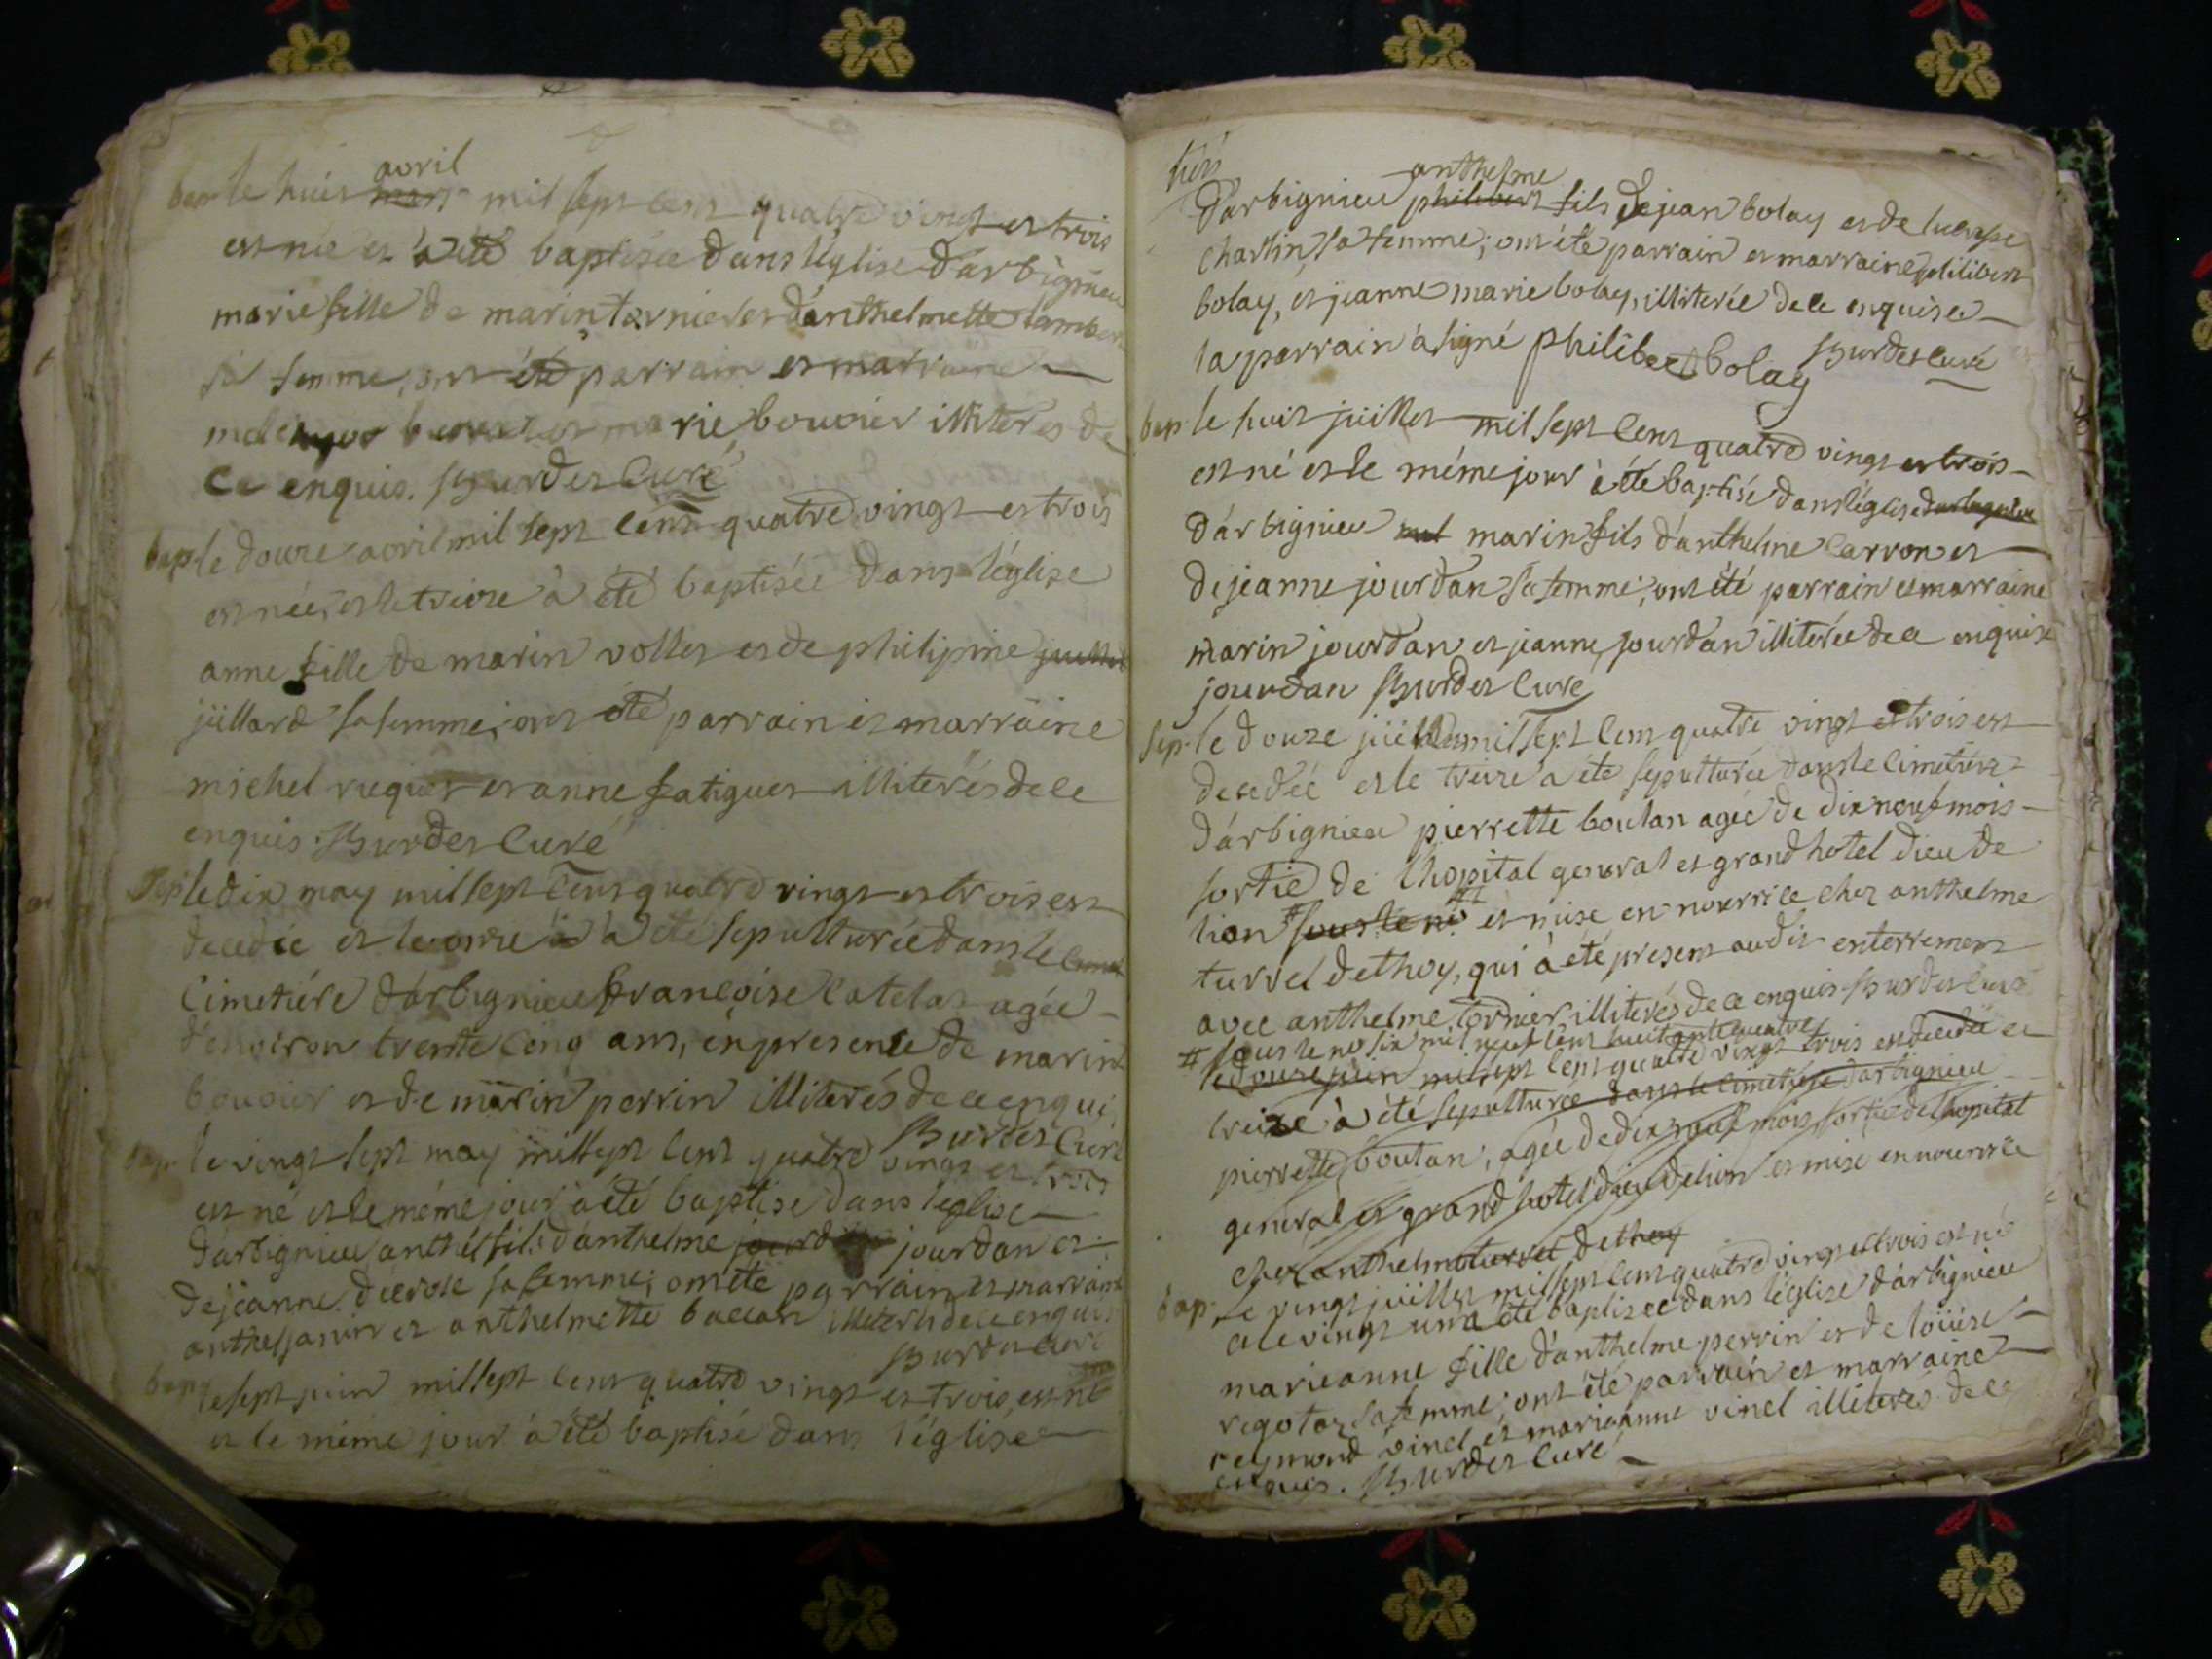 avril
bap le huit mars mil sept cent quatre vingt et trois
est née et à été baptisée dans l'église d'arbignieu
marie fille de marin tornier et d'anthelmette lambert
sa femme, ont été parrain et marraine
et marie bouvier illiterés de
ce enquis. Burdet curé
bap le douze avril mil sept cent quatre vingt et trois
est née, et le treize à été baptisée dans l'église
anne fille de marin vollet et de philipine
jüllard sa femme; ont été parrain et marraine
michel ruguet et anne fatiguet illiterés de ce
enquis. Burdet Curé
Sep le dix may mil sept cent quatre vingt et trois est
decedée et le onze à été sepulturée dans le
Cimetiére d'arbignieu françoise catelat agée
d'environ trente cinq ans, en presence de marin
bouvier et de marin perrin illiterés de ce enquis
Burdet Curé
bap le vingt sept may mil sept cent quatre vingt et trois
est né et le même jour à été baptisé dans l'église
d'arbignieu anthel fils d'anthelme jourdan et
de jeanne ducrose sa femme; ont été parrain et marraine
anthel janin et anthelmette buccan illiterés de ce enquis
Burdet Curé
bap le sept juin mil sept cent quatre vingt et trois, est né
et le même jour à été baptisé dans l'église
anthelme
d'arbignieu philibert fils de jean bolay et de
charlin, sa femme; ont été parrain et marraine philibert
bolay, et jeanne marie bolay, illiterée de ce enquise
la parrain à signé philibert bolay Burdet Curé
bap le huit juillet mil sept cent quatre vingt et trois
est né et le même jour à été baptisé dans l'église d'arbignieu
d'arbignieu marin fils d'anthelme Carron et
de jeanne jourdan sa femme; ont été parrain et marraine
marin jourdan et jeanne jourdan illiterée de ce enquise
jourdan Burdet Curé
Sep. le douze juillet mil sept cent quatre vingt et trois est
decedée et le treize à été sepulturée dans le cimetiére
d'arbignieu pierrette boutan agée de dix nouf mois
sortie de l'hopital general et grand hotel dieu de
lion # sous le no et mise en nourrice chez anthelme
turrel de thoy, qui à été present au dit enterrement
avec anthelme tornier illiterés de ce enquis Burdet Curé
# sous le no six mil neuf cent huitante quatre
le douze juin mil sept cent quatre vingt trois est decedée et
treize à été sepulturée dans le cimetiére d'arbignieu
pierrette boutan, agée de dix nouf mois sortie de l'hopital
general et grand hotel dieu de lion et mise en nourrice
chez anthelme turrel de thoy
bap. le vingt juillet mil sept cent quatre vingt et trois est né
et le vingt un a été baptisée dans l'église d'arbignieu
marieanne fille d'anthelme perrin et de loüise
regotaz sa femme; ont été parrain et marraine
reymond vinel, et marieanne vinel illiterés de ce
enquis. Burdet Curé